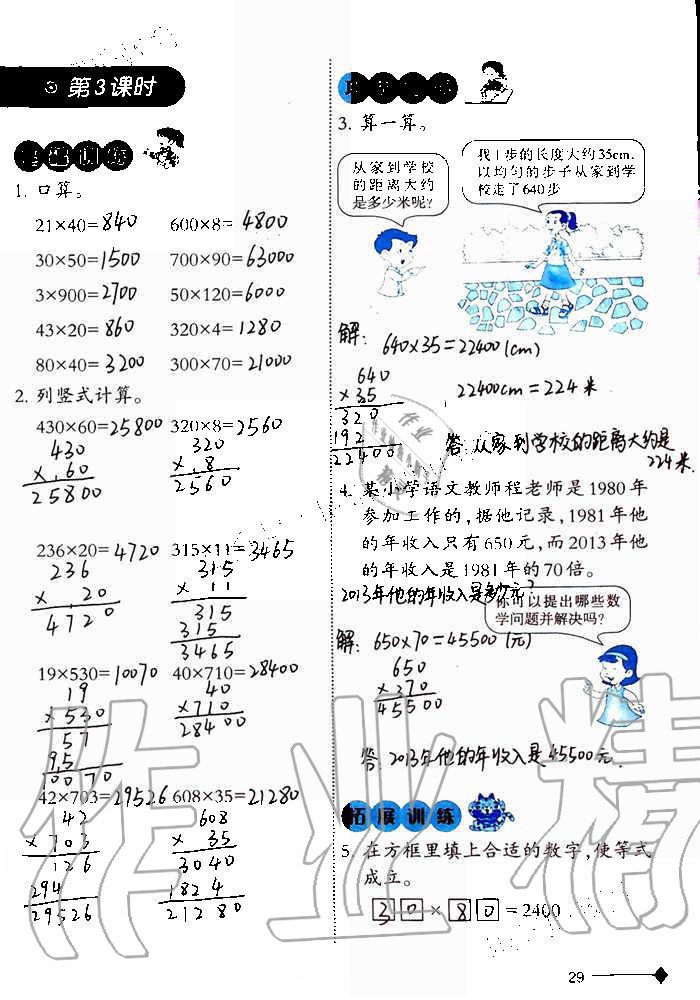 第3课时
基础训练
1. 口算。
21×40=840 600×8=4800
30×50=1500 700×90=63000
3×900=2700 50×120=6000
43×20=860 320×4=1280
80×40=3200 300×70=21000
2. 列竖式计算。
430×60=25800 320×8=2560
430 320
×.60 ×.8
25800 2560
236×20=4720 315×11=3465
236 315
×.20 ×11
4720 315
315
3465
19×530=10070 40×710=28400
19 40
×530 ×710
57 28400
9.5
0070
42×703=29526 608×35=21280
42 608
×703 ×35
126 3040
294 1824
29526 21280
3. 算一算。
从家到学校
的距离大约
是多少米呢?
我1步的长度大约35cm,
以均匀的步子从家到学
校走了640步
解:
640×35=22400(cm)
640
×35
320
192
22400
22400cm=224米
答:从家到学校的距离大约是
224米.
4. 某小学语文教师程老师是1980年
参加工作的,据他记录,1981年他
的年收入只有650元,而2013年他
的年收入是1981年的70倍。
2013年他的年收入是多少元?
你可以提出哪些数
学问题并解决吗?
解:
650×70=45500(元)
650
×70
45500
答:2013年他的年收入是45500元.
拓展训练
5. 在方框里填上合适的数字,使等式
成立。
30×80=2400
29
作业精